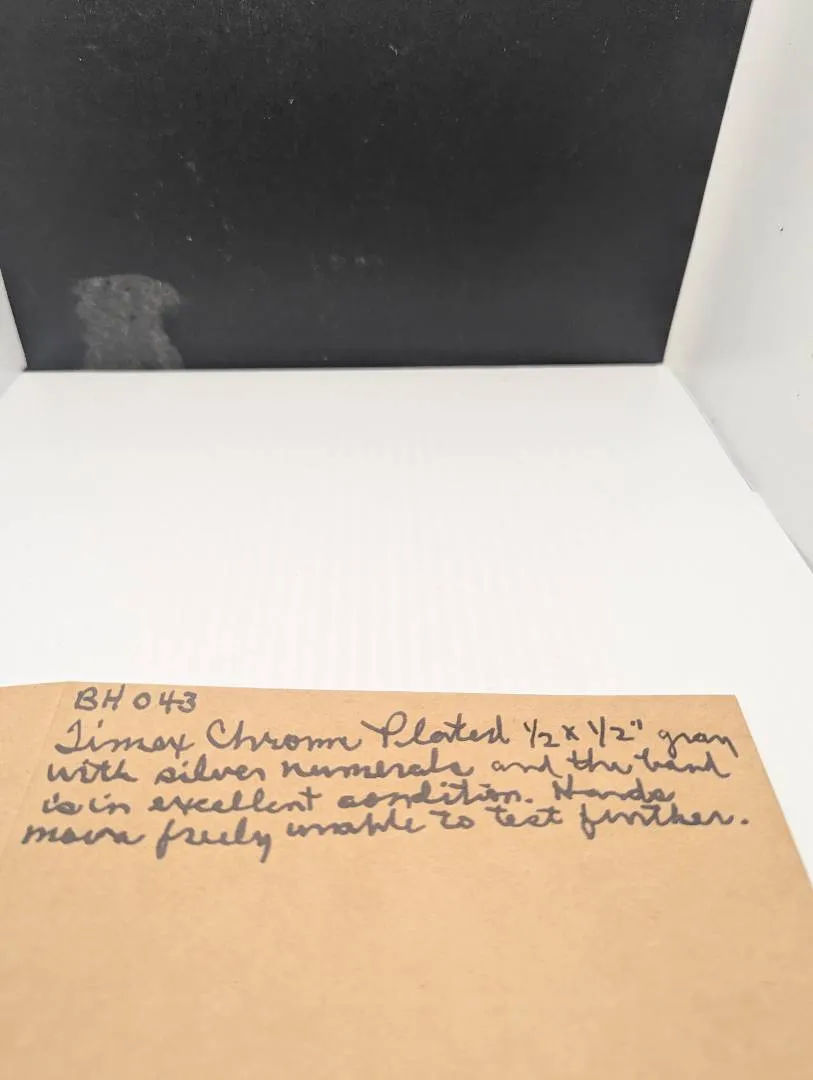 BH 043
Timex Chrome Plated 1/2 x 1/2" gray
with silver numerals and the band
is in excellent condition. Hands
move freely unable to test further.